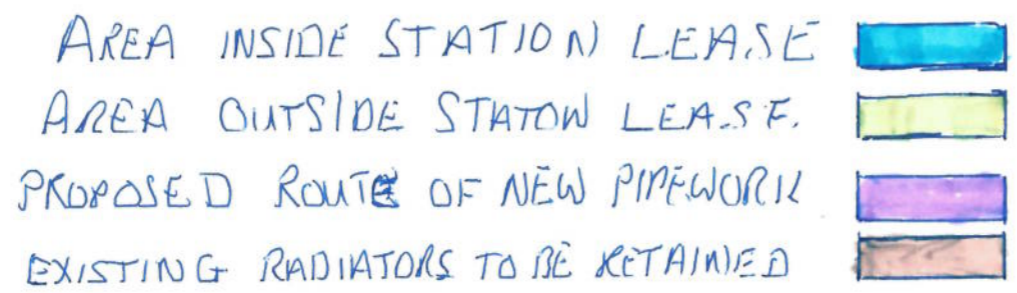 AREA INSIDE STATION LEASE
AREA OUTSIDE STATOW LEASE.
PROPOSED ROUTE OF NEW PIPEWORK
EXISTING RADIATORS TO BE RETAINED